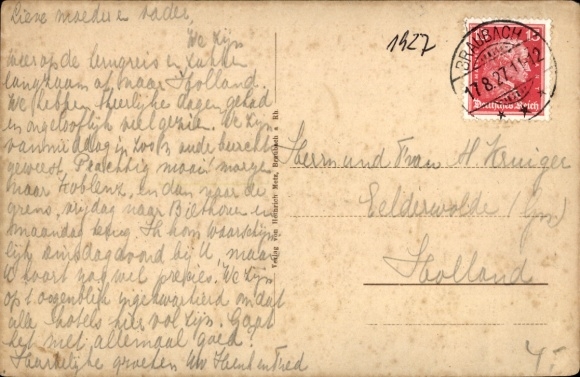 Lieve moeder en vader,
We zijn
weer op de terugreis en zakken
langzaam af naar Holland.
We hebben heerlijke dagen gehad
en ongelooflijk veel gezien. We zijn
vanmiddag in zoo'n oude burcht
geweest, Prachtig mooi! morgen
naar Koblenz, en dan naar de
grens, vrijdag naar Bilthoven en
maandag terug. Ik kom waarschijn-
lijk dinsdagavond bij U, maar
U hoort nog wel precies. We zijn
op 't oogenblik ingekwartierd omdat
alle hotels hier vol zijn. Gaat
het met allemaal goed?
Hartelijke groeten Uw Henk en Fred
Verlag von Heinrich Metz, Braubach a Rh.
1927
BRAUBACH
17.8.27 11-12
15
Deutsches Reich
Herrn und Frau H. Kruizer
Eelderwolde (Gn)
Holland
4.-